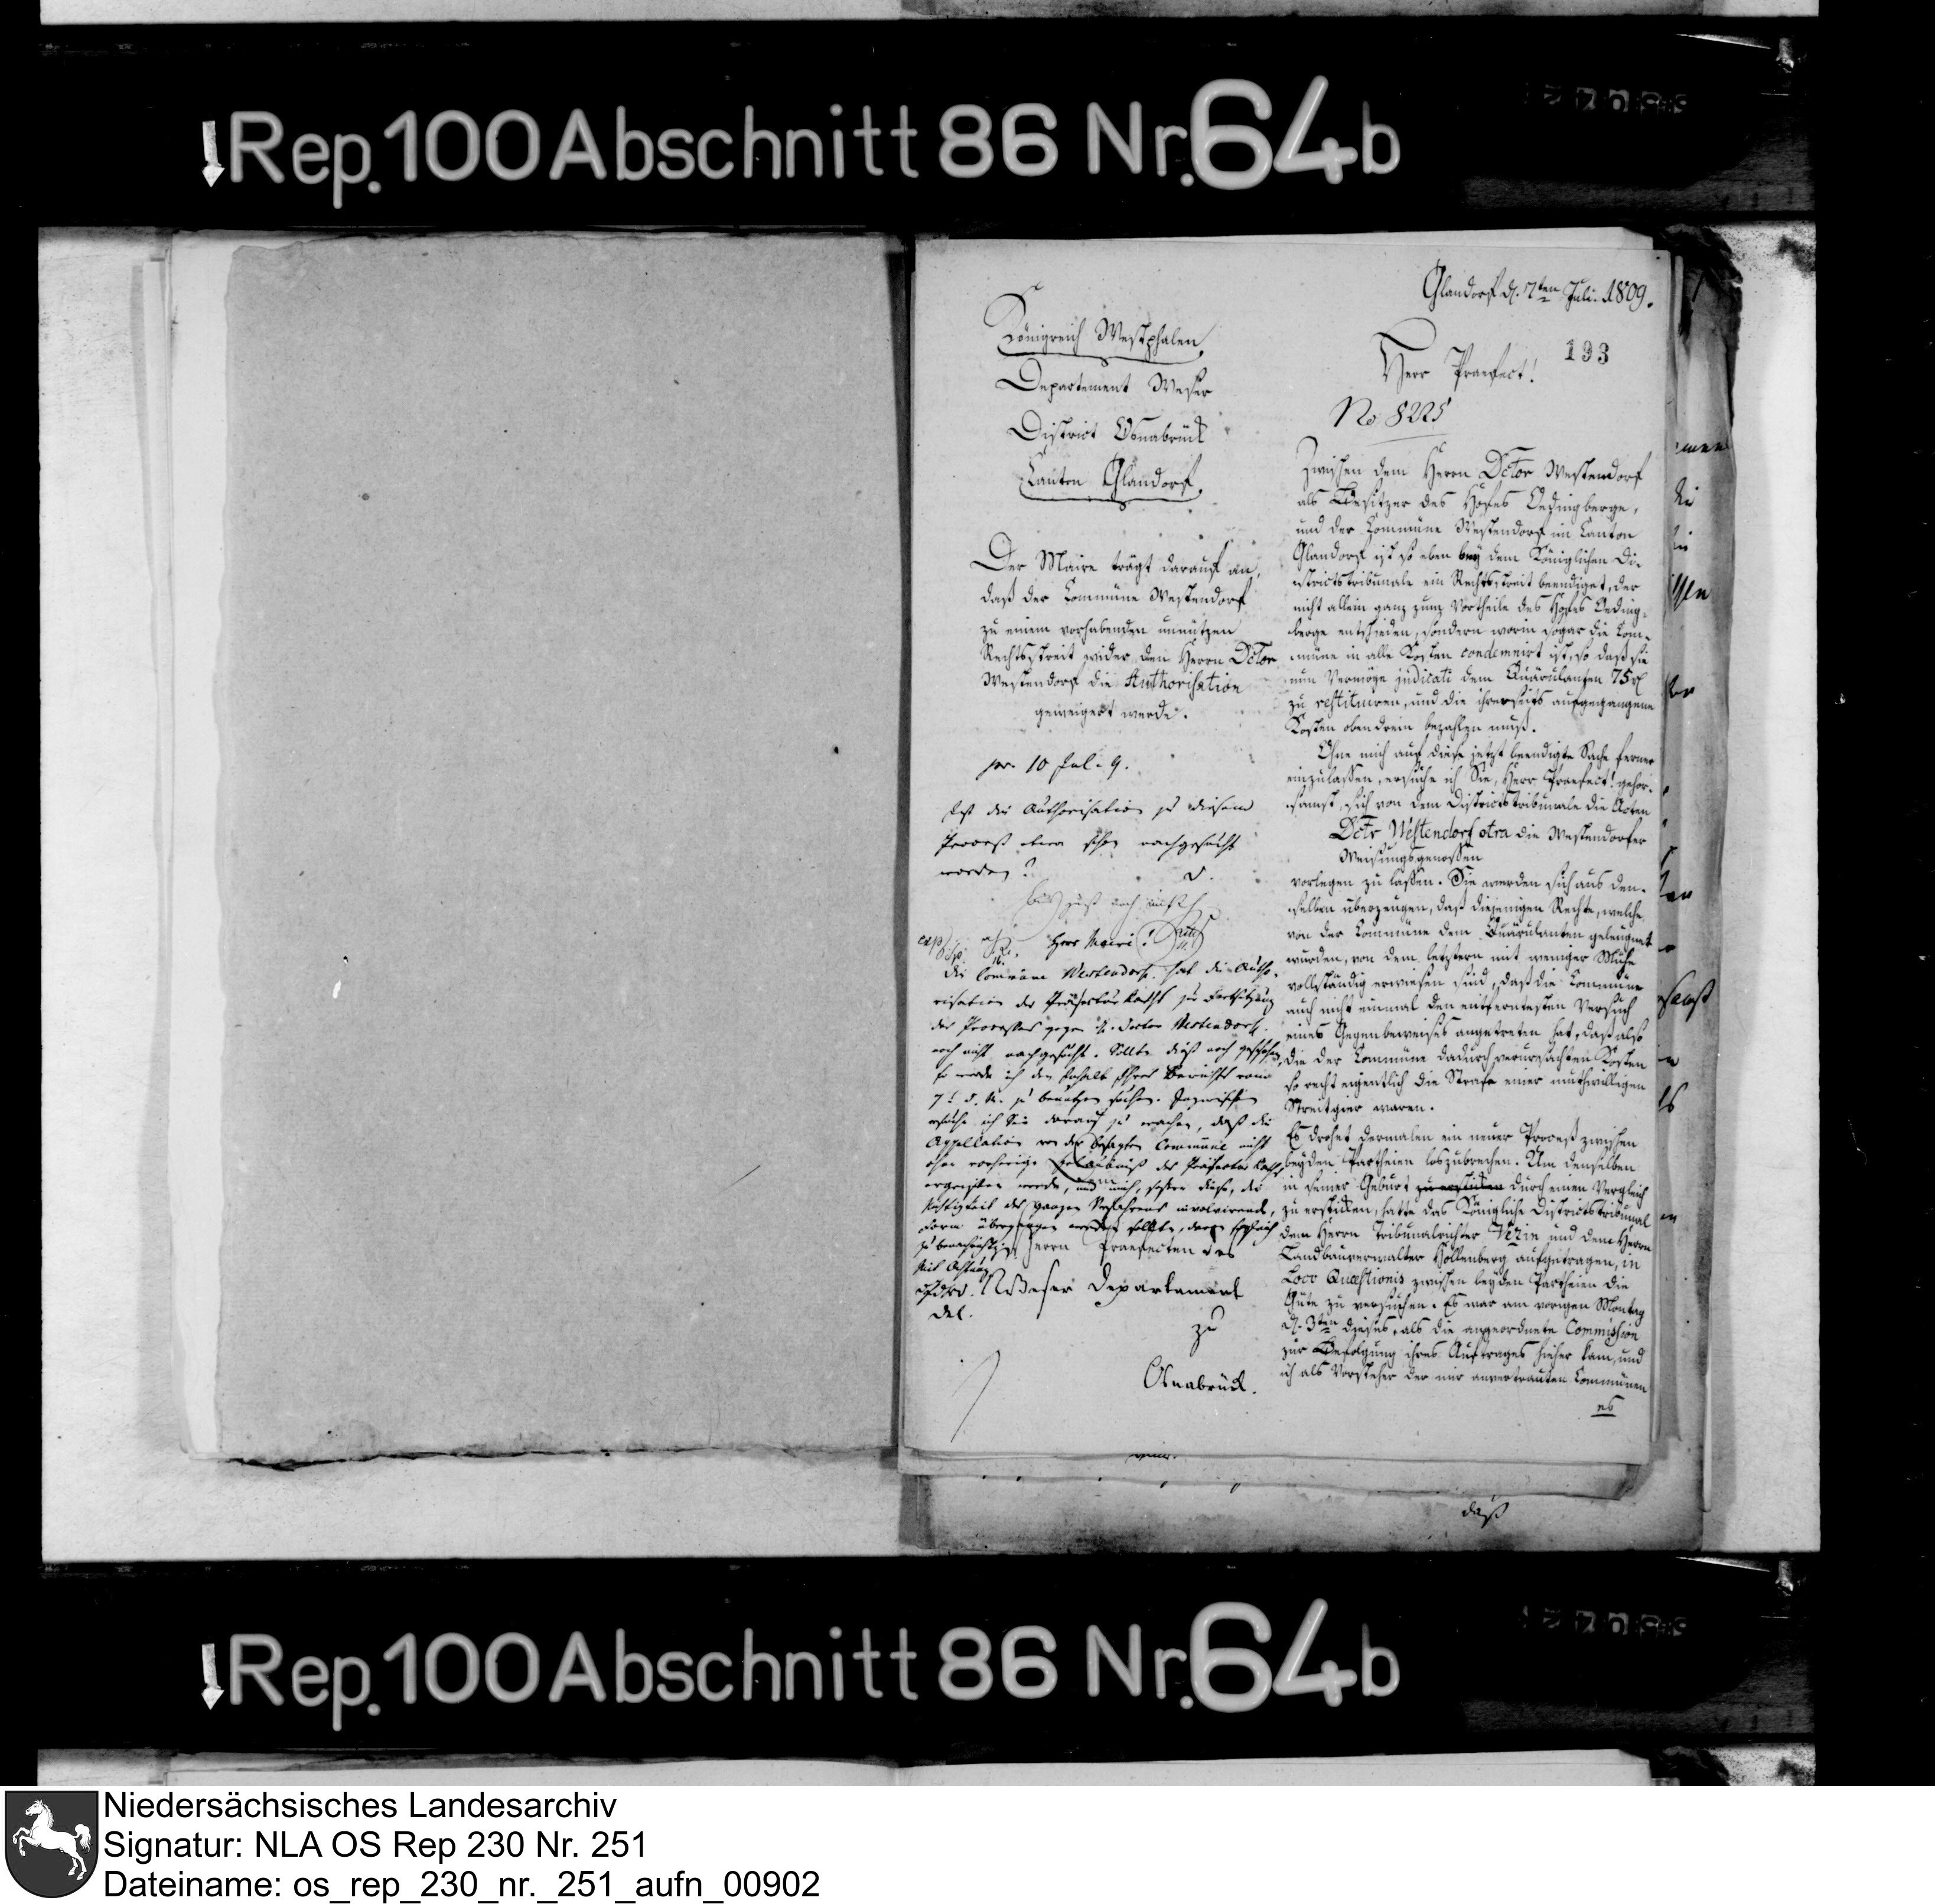 Rep. 100 Abschnitt 86 Nr. 64b
Glandorf d. 7ten Juli. 1809.
193
Königreich Westphalen,
Departement Weser
District Osnabrück
Canton Glandorf.
Der Maire trägt darauf an,
daß der Commüne Westendorf
zu einem vorhabenden unnützen
Rechtsstreit wider den Herrn Dctor
Westendorf die Authorisation
geweigert werde.
pr. 10 Juli 9.
Ist die Authorisation zu diesem
Proceß etwa schon nachgesucht
worden?
Herr Maire!
Die Commüne Westendorf hat die Autho-
risation des Präfecturraths zur Fortsetzung
des Processes gegen H. Doctor Westendorf
noch nicht nachgesucht. Sollte dieß noch geschehen,
so werde ich den Inhalt Ihres Berichts vom
7t d. M. zu benutzen suchen. Inzwischen
ersuche ich Sie darauf zu wachen, daß die
Appellation von der besagten Commüne nicht
ohne vorherige Erlaubniß des Präfectur Raths
ergriffen werde, und mich, sofern diese, die
Nichtigkeit des ganzen Verfahrens involvirende,
Form übergangen werden sollte, davon sogleich
zu benachrichtigen
Mit Achtung
Herrn Praefecten des
Weser Departement
zu
Osnabrück.
Herr Praefect!
No 8225
Zwischen dem Herrn Dctor Westendorf
als Besitzer des Hofes Oedingberge,
und der Commüne Westendorf im Canton
Glandorf ist so eben bey dem Königlichen Di-
strictstribunale ein Rechtsstreit beendiget, der
nicht allein ganz zum Vortheile des Hofes Oeding-
berge entschieden, sondern worin sogar die Com-
müne in alle Kosten condemnirt ist, so daß sie
nun Vermöge judicati dem Quärulanten 75 rl
zu restituiren, und die ihrerseits aufgegangene
Kosten obendrein bezahlen muß.
Ohne mich auf diese jetzt beendigte Sache ferner
einzulassen, ersuche ich Sie, Herr Praefect! gehor-
samst, sich von dem Districtstribunale die Acten
Dctr Westendorf ctra die Westendorfer
Weisungsgenossen
vorlegen zu lassen. Sie werden sich aus den-
selben überzeugen, daß diejenigen Rechte, welche
von der Commüne dem Quärulanten geleugnet
wurden, von dem letztern mit weniger Mühe
vollständig erwiesen sind, daß die Commüne
auch nicht einmal den entferntesten Versuch
eines Gegenbeweises angetreten hat, daß also
die der Commüne dadurch verursachten Kosten
so recht eigentlich die Strafe einer muthwilligen
Streitgier waren.
Es drohet dermalen ein neuer Proceß zwischen
beyden Partheien loszubrechen. Um denselben
in seiner Geburt zu ersticken durch einen Vergleich
zu ersticken, hatte das Königliche Districtstribunal
dem Herrn Tribunalrichter Vezin und dem Herrn
Landbauverwalter Hollenberg aufgetragen, in
Loco Quaestionis zwischen beyden Partheien die
Güte zu versuchen. Es war am vorigen Montag
d. 3ten dieses, als die angeordnete Commission
zur Befolgung ihres Auftrages hieher kam, und
ich als Vorsteher der mir anvertrauten Commünen
es
daß
Rep. 100 Abschnitt 86 Nr. 64b
Niedersächsisches Landesarchiv
Signatur: NLA OS Rep 230 Nr. 251
Dateiname: os_rep_230_nr._251_aufn_00902